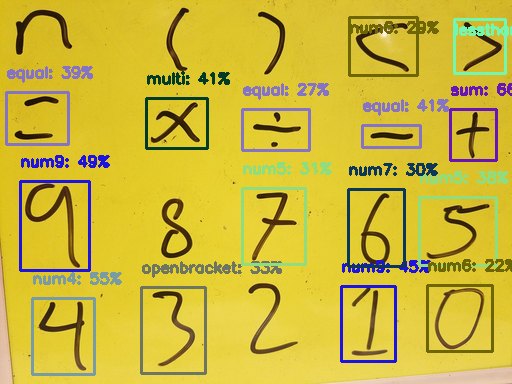 n ( ) < >
num6: 29% lessthan
= × ÷ − +
equal: 39% multi: 41% equal: 27% equal: 41% sum: 66
9 8 7 6 5
num9: 49% num5: 31% num7: 30% num5: 38%
4 3 2 1 0
num4: 55% openbracket: 33% num9: 45% num6: 22%